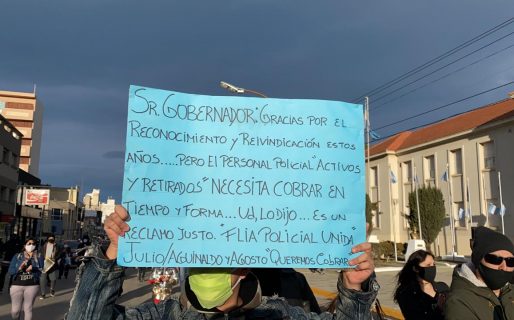 Sr. GOBERNADOR: "GRACIAS POR EL
RECONOCIMIENTO Y REIVINDICACIÓN ESTOS
AÑOS.....PERO EL PERSONAL POLICIAL "ACTIVOS
Y RETIRADOS" NECESITA COBRAR EN
TIEMPO Y FORMA...Ud, LO DIJO...ES UN
RECLAMO JUSTO. "FLIA POLICIAL UNIDA"
JULIO/AGUINALDO Y AGOSTO QUEREMOS COBRAR